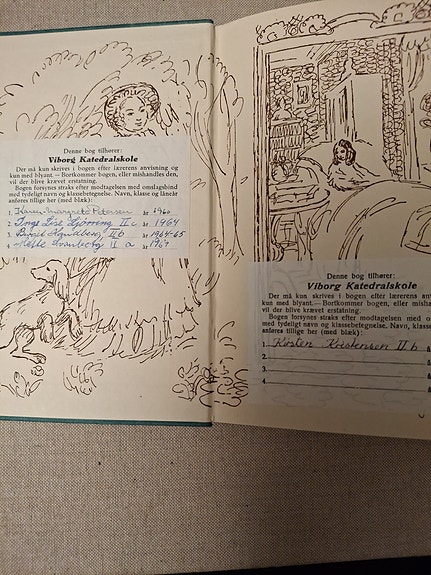 Denne bog tilhører:
Viborg Katedralskole
Der må kun skrives i bogen efter lærerens anvisning og
kun med blyant. — Bortkommer bogen, eller mishandles den,
vil der blive krævet erstatning.
Bogen forsynes straks efter modtagelsen med omslagsbind
med tydeligt navn og klassebetegnelse. Navn, klasse og låneår
anføres tillige her (med blæk):
1. Karen Margrethe Pedersen år 1960
2. Inge Lise Hjørring II c år 1964
3. Birgit II b år 1964-65
4. II a år 1967
Denne bog tilhører:
Viborg Katedralskole
Der må kun skrives i bogen efter lærerens anv
kun med blyant. — Bortkommer bogen, eller misha
vil der blive krævet erstatning.
Bogen forsynes straks efter modtagelsen med o
med tydeligt navn og klassebetegnelse. Navn, klasse
anføres tillige her (med blæk):
1. Kirsten Kristensen II b å
2. å
3. å
4. å